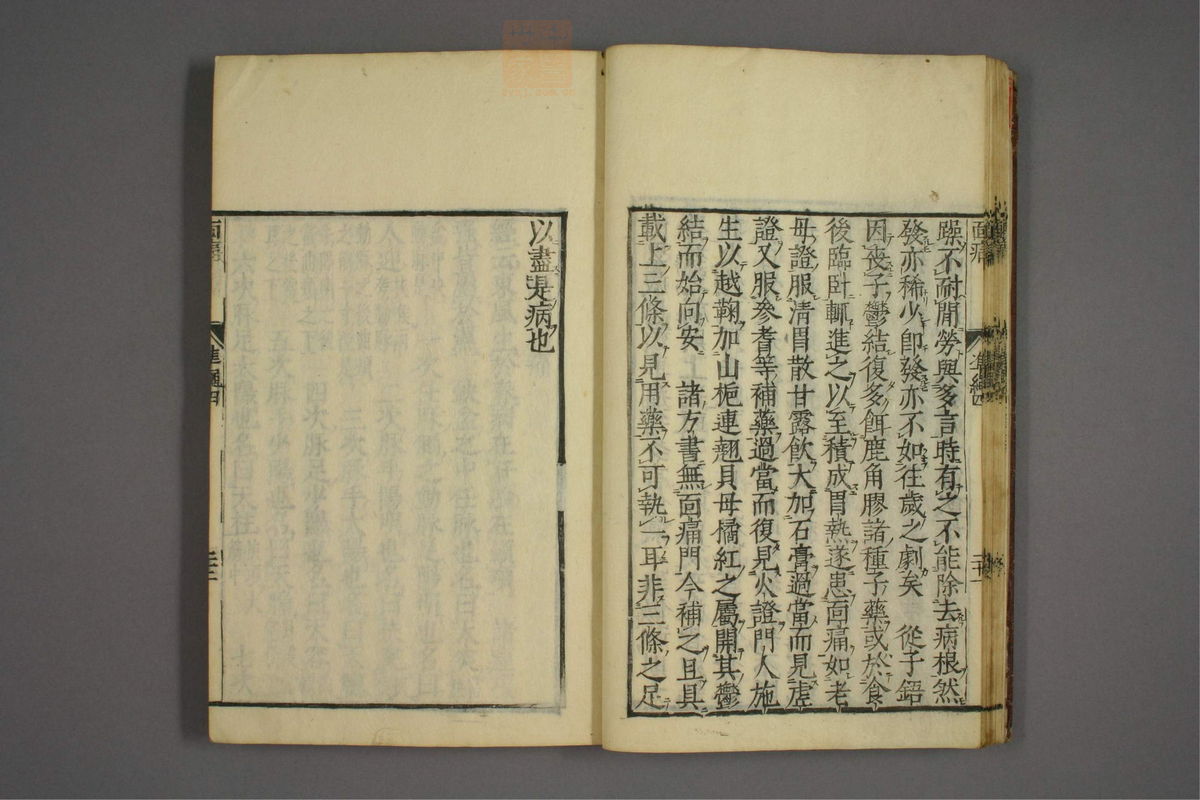 面痛
準繩四
躁不耐閒勞與多言時有之不能除去病根然
發亦稀少即發亦不如往歲之劇矣 從子錯
因喪子鬱結復多餌鹿角膠諸種子藥或於食
後臨臥輒進之以至積成胃熱遂患面痛如老
母證服清胃散甘露飲大加石膏過當而見虛
證又服參耆等補藥過當而復見火證門人施
生以越鞠加山梔連翹貝母橘紅之屬開其鬱
結而始向安 諸方書無面痛門今補之且具
載上三條以見用藥不可執一耳非三條之足
以盡是病也